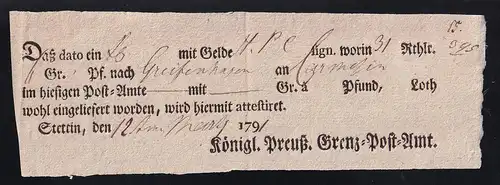 15.
Daß dato ein mit Gelde H. P. C sign. worin 31 Rthlr.
Gr. Pf. nach Greifenhagen an
im hiesigen Post-Amte — mit — Gr. à Pfund, Loth
wohl eingeliefert worden, wird hiermit attestiret.
Stettin, den 12 Martz 1791
Königl. Preuß. Grenz-Post-Amt.